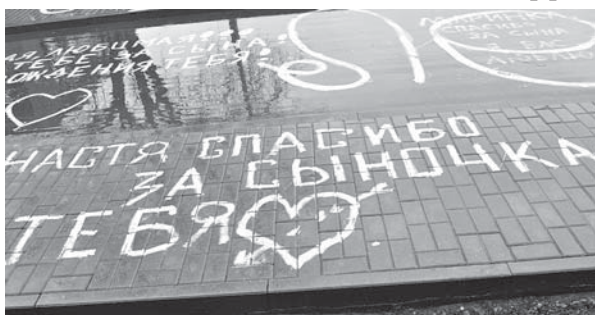 ЛЮБИМАЯ
ТЕБЕ ЗА СЫНА
РОЖДЕНИЯ ТЕБЯ
МАРИНКА
СПАСИБО
ЗА СЫНА
Я ВАС
ЛЮБЛЮ
НАСТЯ СПАСИБО
ЗА СЫНОЧКА
ТЕБЯ